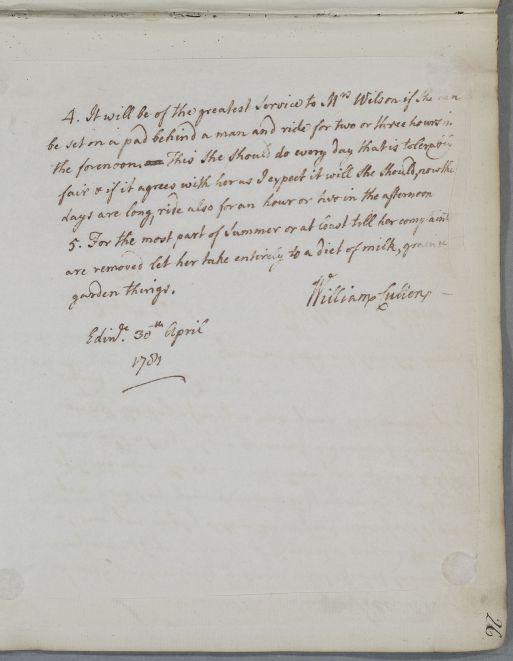 4. It will be of the greatest Service to Mrs Wilson if she can
be set on a pad behind a man and ride for two or three hours in
the forenoon. This she should do every day that is tolerably
fair & if it agrees with her as I expect it will she should, now the
days are long, ride also for an hour or two in the afternoon
5. For the most part of Summer or at least till her complaints
are removed let her take entirely to a diet of milk, grain &
garden things.
William Cullen
Edinr. 30th April
1781
26